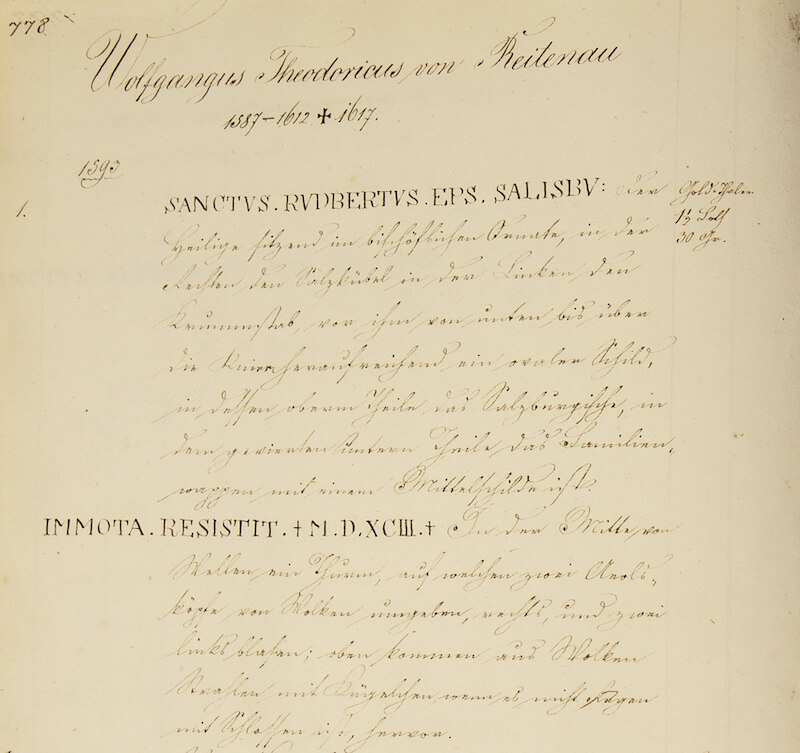 778.
Wolfgangus Theodoricus von Reitenau
1587–1612 ✝ 1617.
1593
1. SANCTVS. RVDBERTVS. EPS. SALISBV: Der Gold-Thaler
Heilige sitzend im bischöflichen Ornate, in der 1½ Loth
Rechten den Salzkübel in der Linken den 30 Gr.
Krummstab, vor ihm von unten bis über
die Kniee heraufreichend ein ovaler Schild,
in dessen oberm Theile das Salzburgische, in
dem gevierten untern Theile das Familien-
wappen mit einem Mittelschilde ist.
IMMOTA. RESISTIT. † M. D. XCIII. † In der Mitte von
Wellen ein Thurm, auf welchen zwei Aeols-
köpfe von Wolken umgeben, rechts, und zwei
links blasen; oben kommen aus Wolken
Strahlen mit Kügelchen wenn es nicht Regen
mit Schlossen ist, hervor.